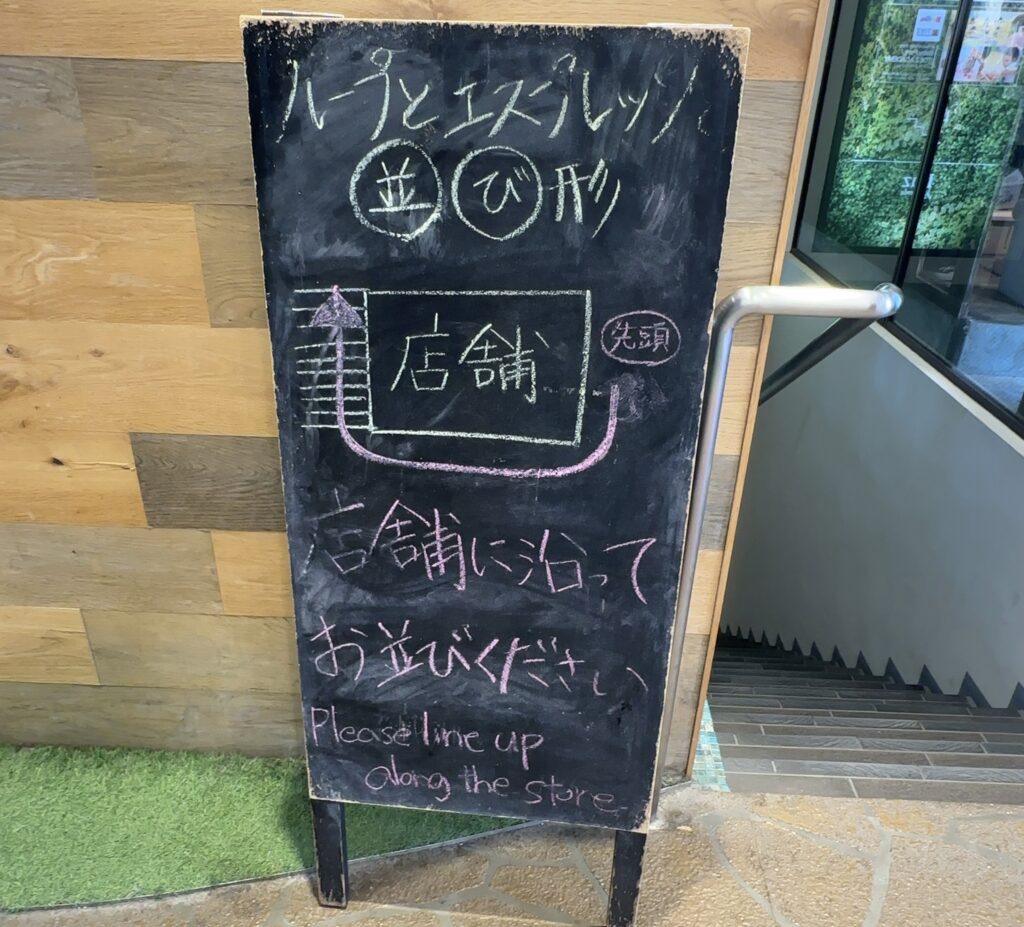 ループとエスプレッソ
並び形
店舗
先頭
店舗に沿って
お並びください
Please line up
along the store